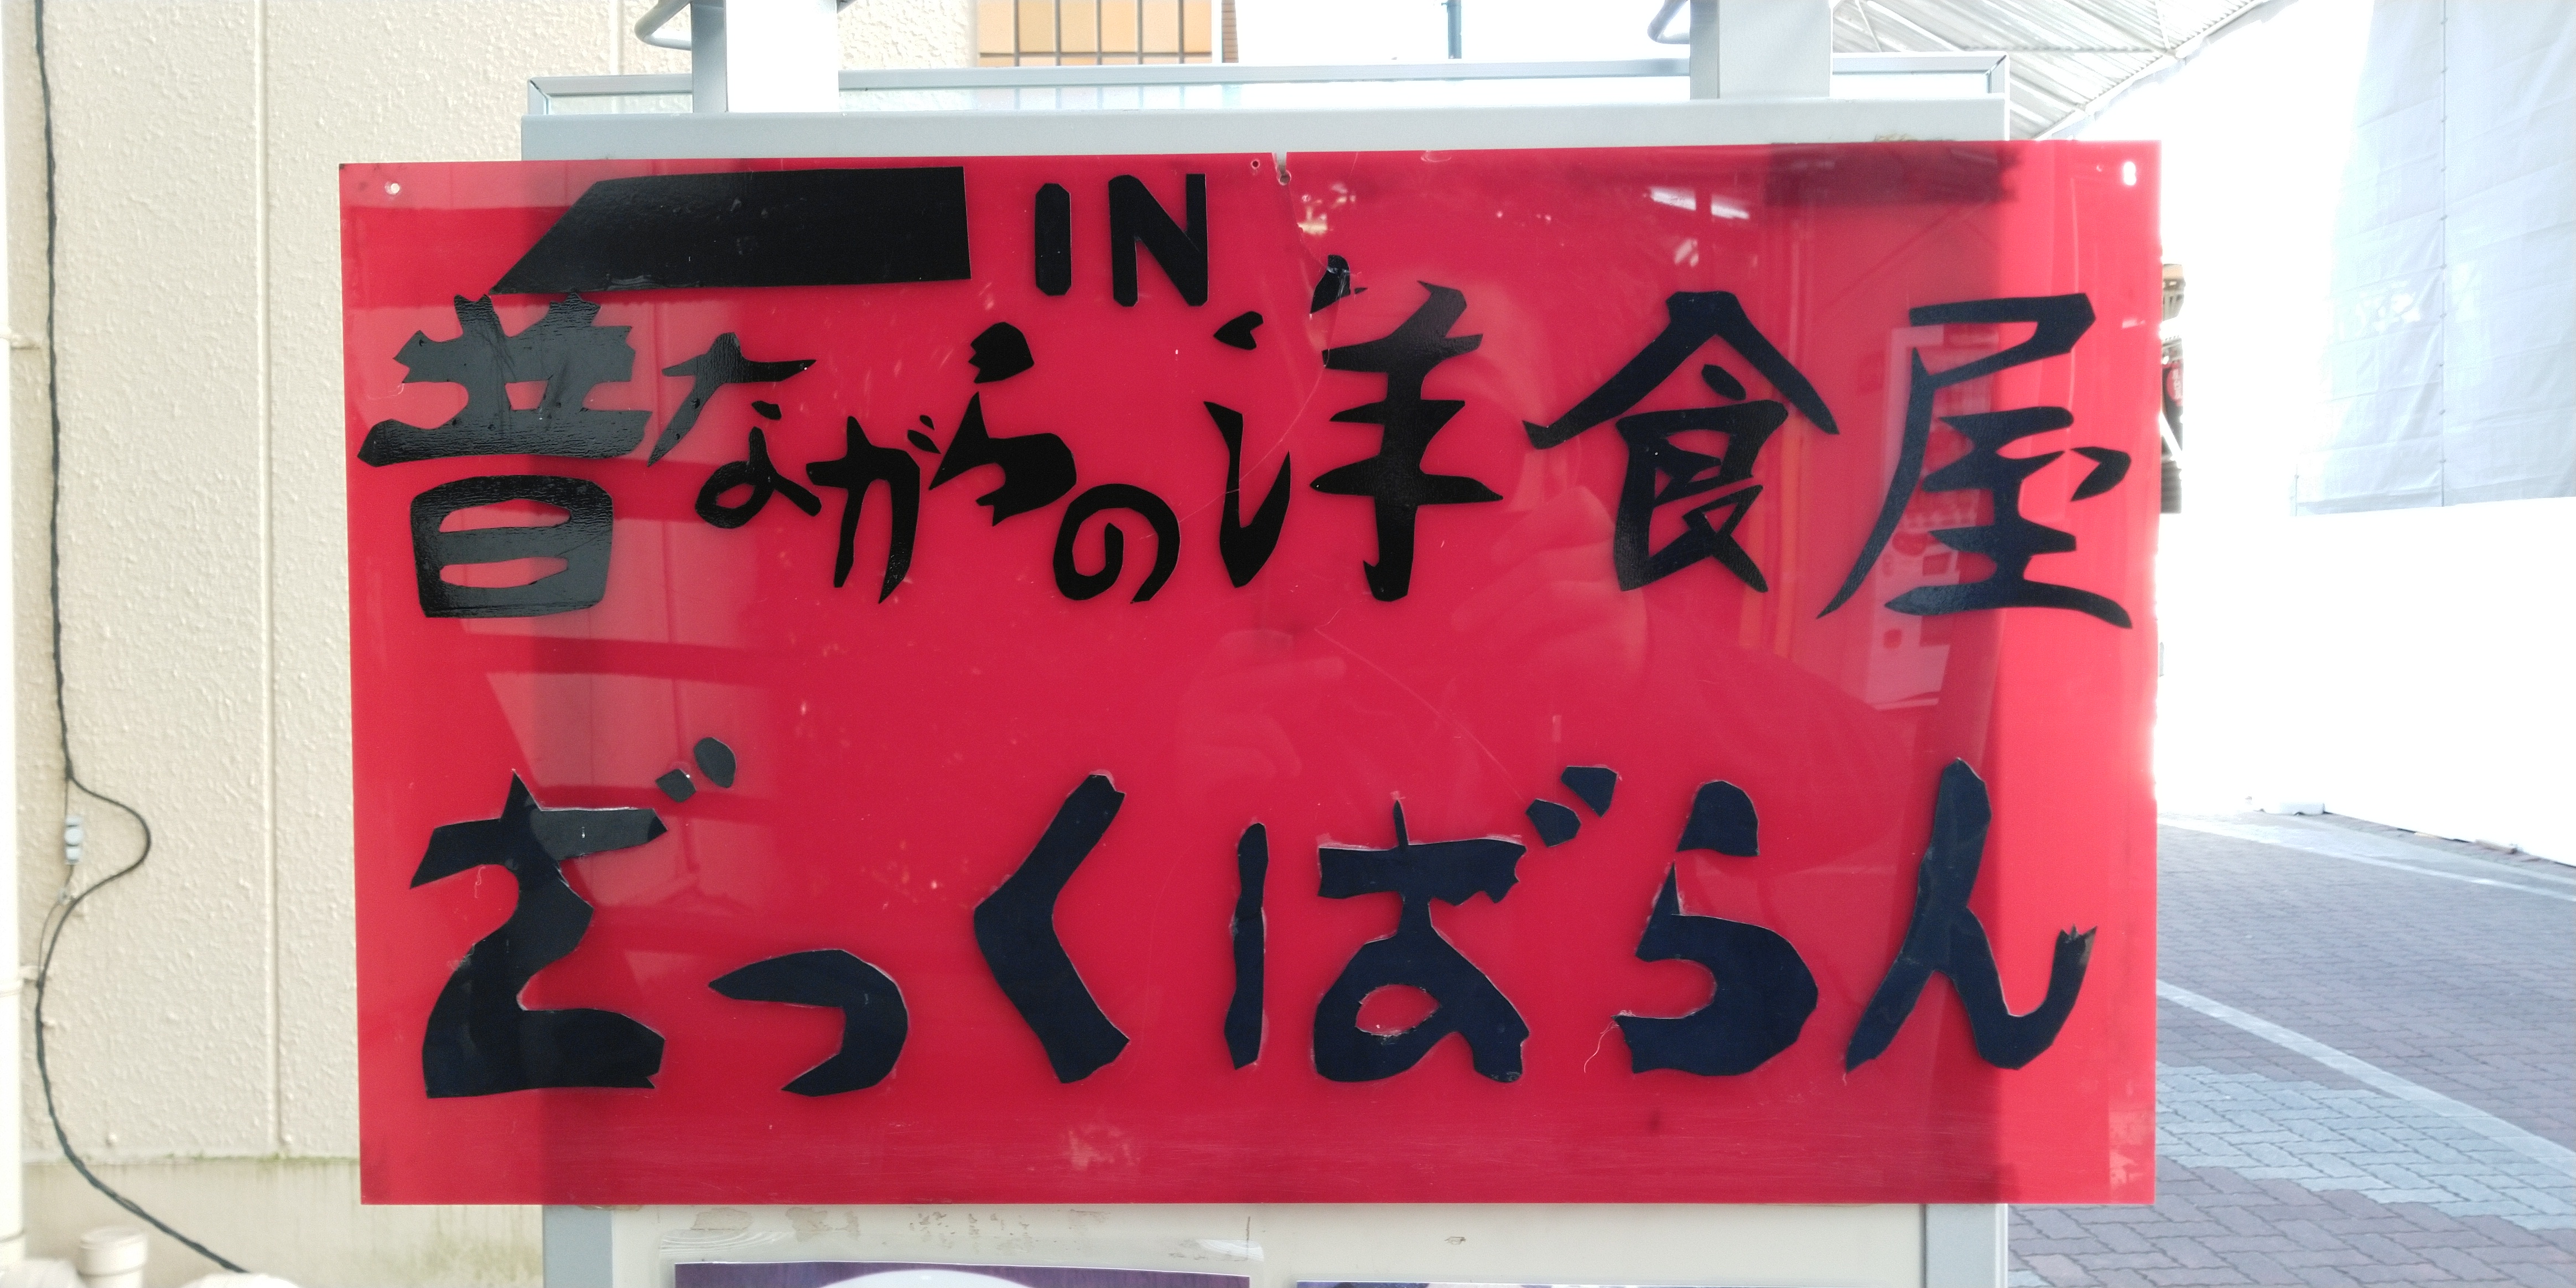 IN
昔ながらの洋食屋
ざっくばらん